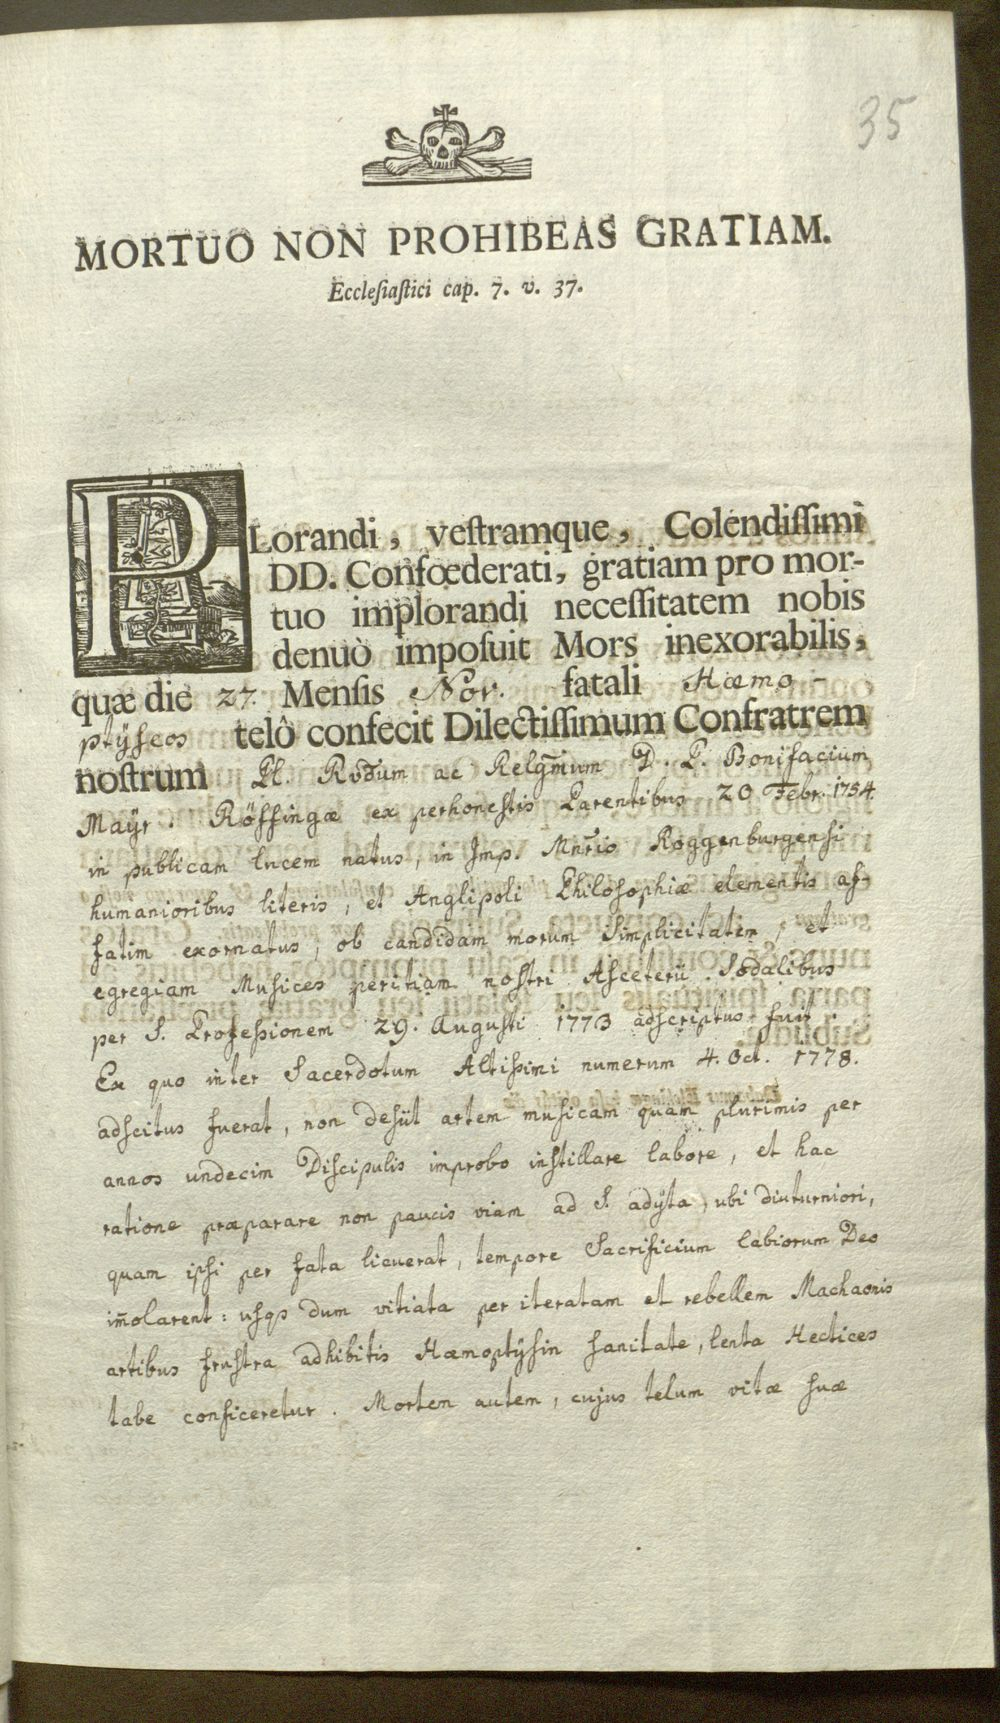 35
MORTUO NON PROHIBEAS GRATIAM.
Ecclesiastici cap. 7. v. 37.
PLorandi, vestramque, Colendissimi
DD. Confœderati, gratiam pro mor-
tuo implorandi necessitatem nobis
denuò imposuit Mors inexorabilis,
quæ die 27. Mensis Nov. fatali Hæmo-
ptÿseos telô confecit Dilectissimum Confratrem
nostrum Pl. Rvdum ac Relgmum D. P. Bonifacium
Maÿr. Rössingæ ex perhonestis Parentibus 20 Febr. 1754.
in publicam lucem natus, in Imp. Mnrio Roggenburgensi
humanioribus literis, et Anglipoli Philosophiæ elementis af-
fatim exornatus, ob candidam morum simplicitatem, et
egregiam Musices peritiam nostri Asceterii Sodalibus
per S. Professionem 29. Augusti 1773 adscriptus fuit.
Ex quo inter Sacerdotum Altissimi numerum 4. Oct. 1778.
adscitus fuerat, non desiit artem musicam quam plurimis per
annos undecim Discipulis improbo instillare labore, et hac
ratione præparare non paucis viam ad S. adÿta, ubi diuturniori,
quam ipsi per fata licuerat, tempore Sacrificium labiorum Deo
im̃olarent: usqs dum vitiata per iteratam et rebellem Machaonis
artibus frustra adhibitis Hæmoptÿsin sanitate, lenta Hectices
tabe conficeretur. Mortem autem, cujus telum vitæ suæ